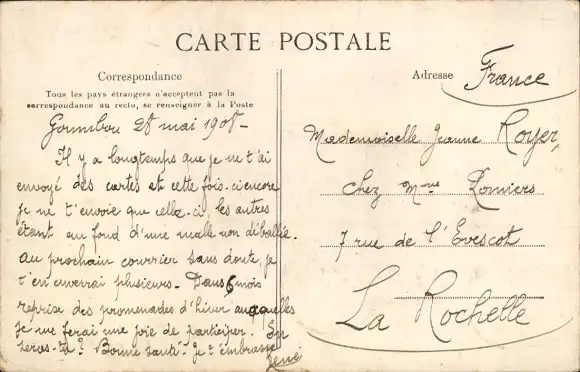 CARTE POSTALE
Correspondance
Tous les pays étrangers n'acceptent pas la
correspondance au recto, se renseigner à la Poste
28 mai 1908-
Il y a longtemps que je ne t'ai
envoyé des cartes et cette fois-ci encore
je ne t'envoie que celle-ci, les autres
étant au fond d'une malle non déballée.
au prochain courrier sans doute, je
t'en enverrai plusieurs- Dans 6 mois
reprise des promenades d'hiver auxquelles
je me ferai une joie de participer. En
seras-tu? Bonne santé. Je t'embrasse
René
Adresse
France
Mademoiselle Jeanne Royer,
chez Mme
7 rue de l'Evescot
La Rochelle